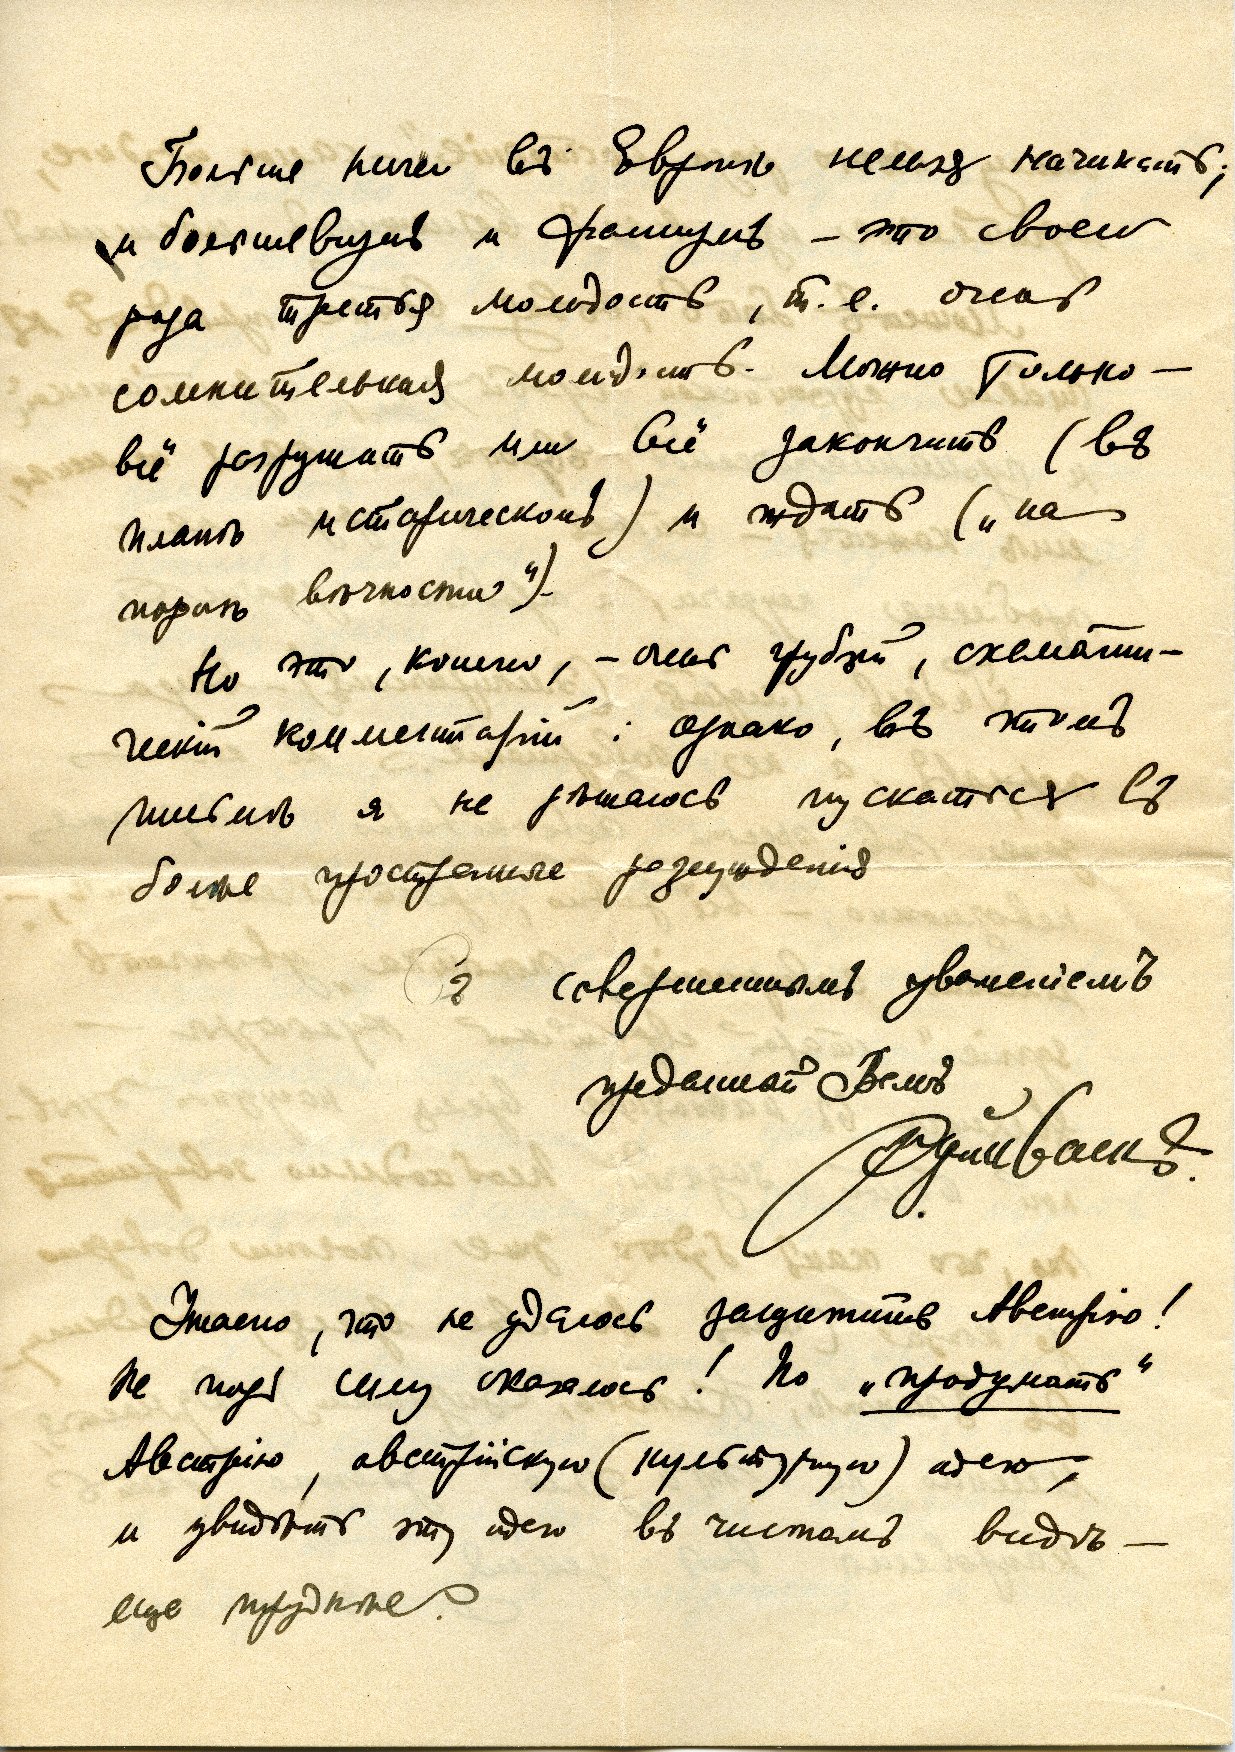 Больше ничего въ Европѣ нельзя начинать;
и большевизмъ и фашизмъ – это своего
рода третья молодость, т. е. очень
сомнительная молодость. Можно только –
всё разрушать или всё закончить (въ
планѣ историческомъ) и ждать („на
порогѣ вѣчности“).
Но это, конечно, – очень грубый, схемати-
ческій комментарій: однако, въ этомъ
письмѣ я не рѣшаюсь пускаться въ
более пространные разсужденія
Съ совершеннымъ уваженіемъ
преданный Вамъ
Ю. Иваскъ.
Ужасно, что не удалось защитить Австрію!
Не подъ силу оказалось! Но „продумать“
Австрію, австрійскую (культурную) идею,
и увидѣть эту идею въ чистомъ видѣ –
еще труднѣе.